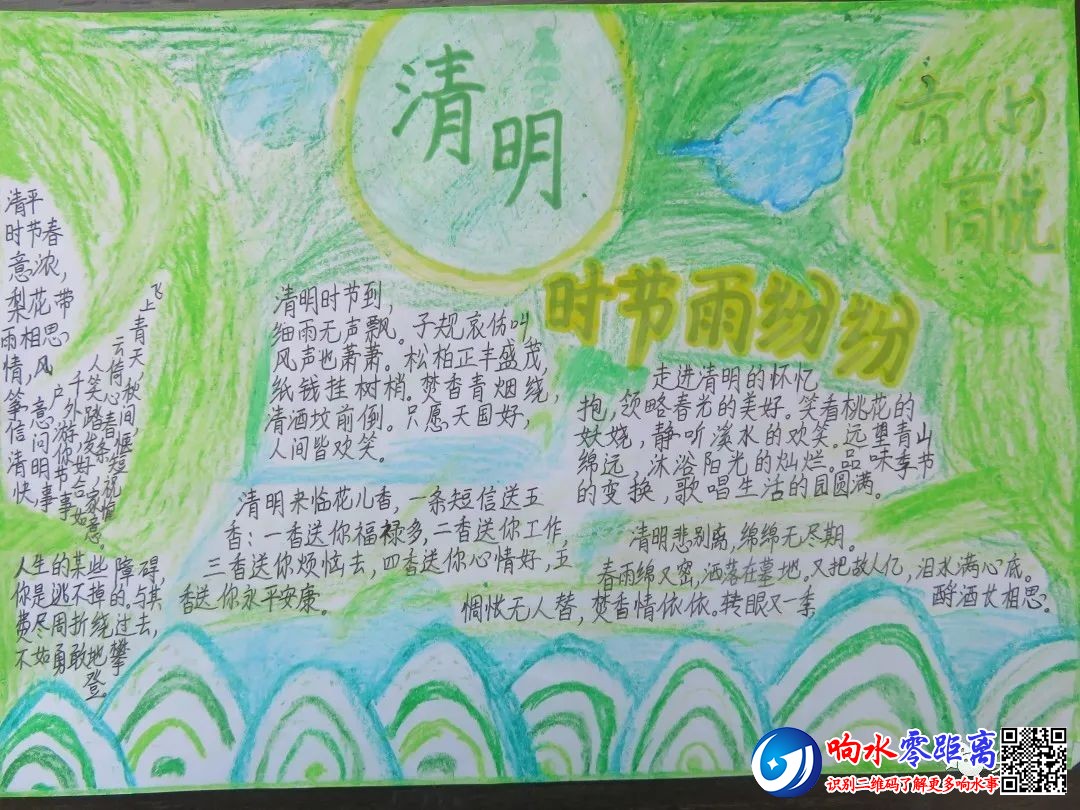 清明
六(上)
高悦
时节雨纷纷
清平
时节春
意浓，
梨花带
雨相思
情，风
筝
信
清
快，
飞
上青天，秋
清明时节到，
细雨无声飘。子规哀伤叫
风声也萧萧。松柏正丰盛茂，
纸钱挂树梢。焚香青烟绕，
清酒坟前倒。只愿天国好，
人间皆欢笑。
走进清明的怀忆
抱，领略春光的美好。笑看桃花的
妖娆，静听溪水的欢笑。远望青山
绵远，沐浴阳光的灿烂。品味季节
的变换，歌唱生活的团圆满。
清明来临花儿香，一条短信送五
香：一香送你福禄多，二香送你工作，
三香送你烦恼去，四香送你心情好，五
香送你永平安康。
清明悲别离，绵绵无尽期。
春雨绵又密，洒落在墓地。又把故人亿，泪水满心底。
惆怅无人替，焚香情依依。转眼又一季
酹酒长相思。
人生的某些障碍，
你是逃不掉的。与其
费尽周折绕过去，
不如勇敢地攀
登。
响水零距离
识别二维码了解更多响水事